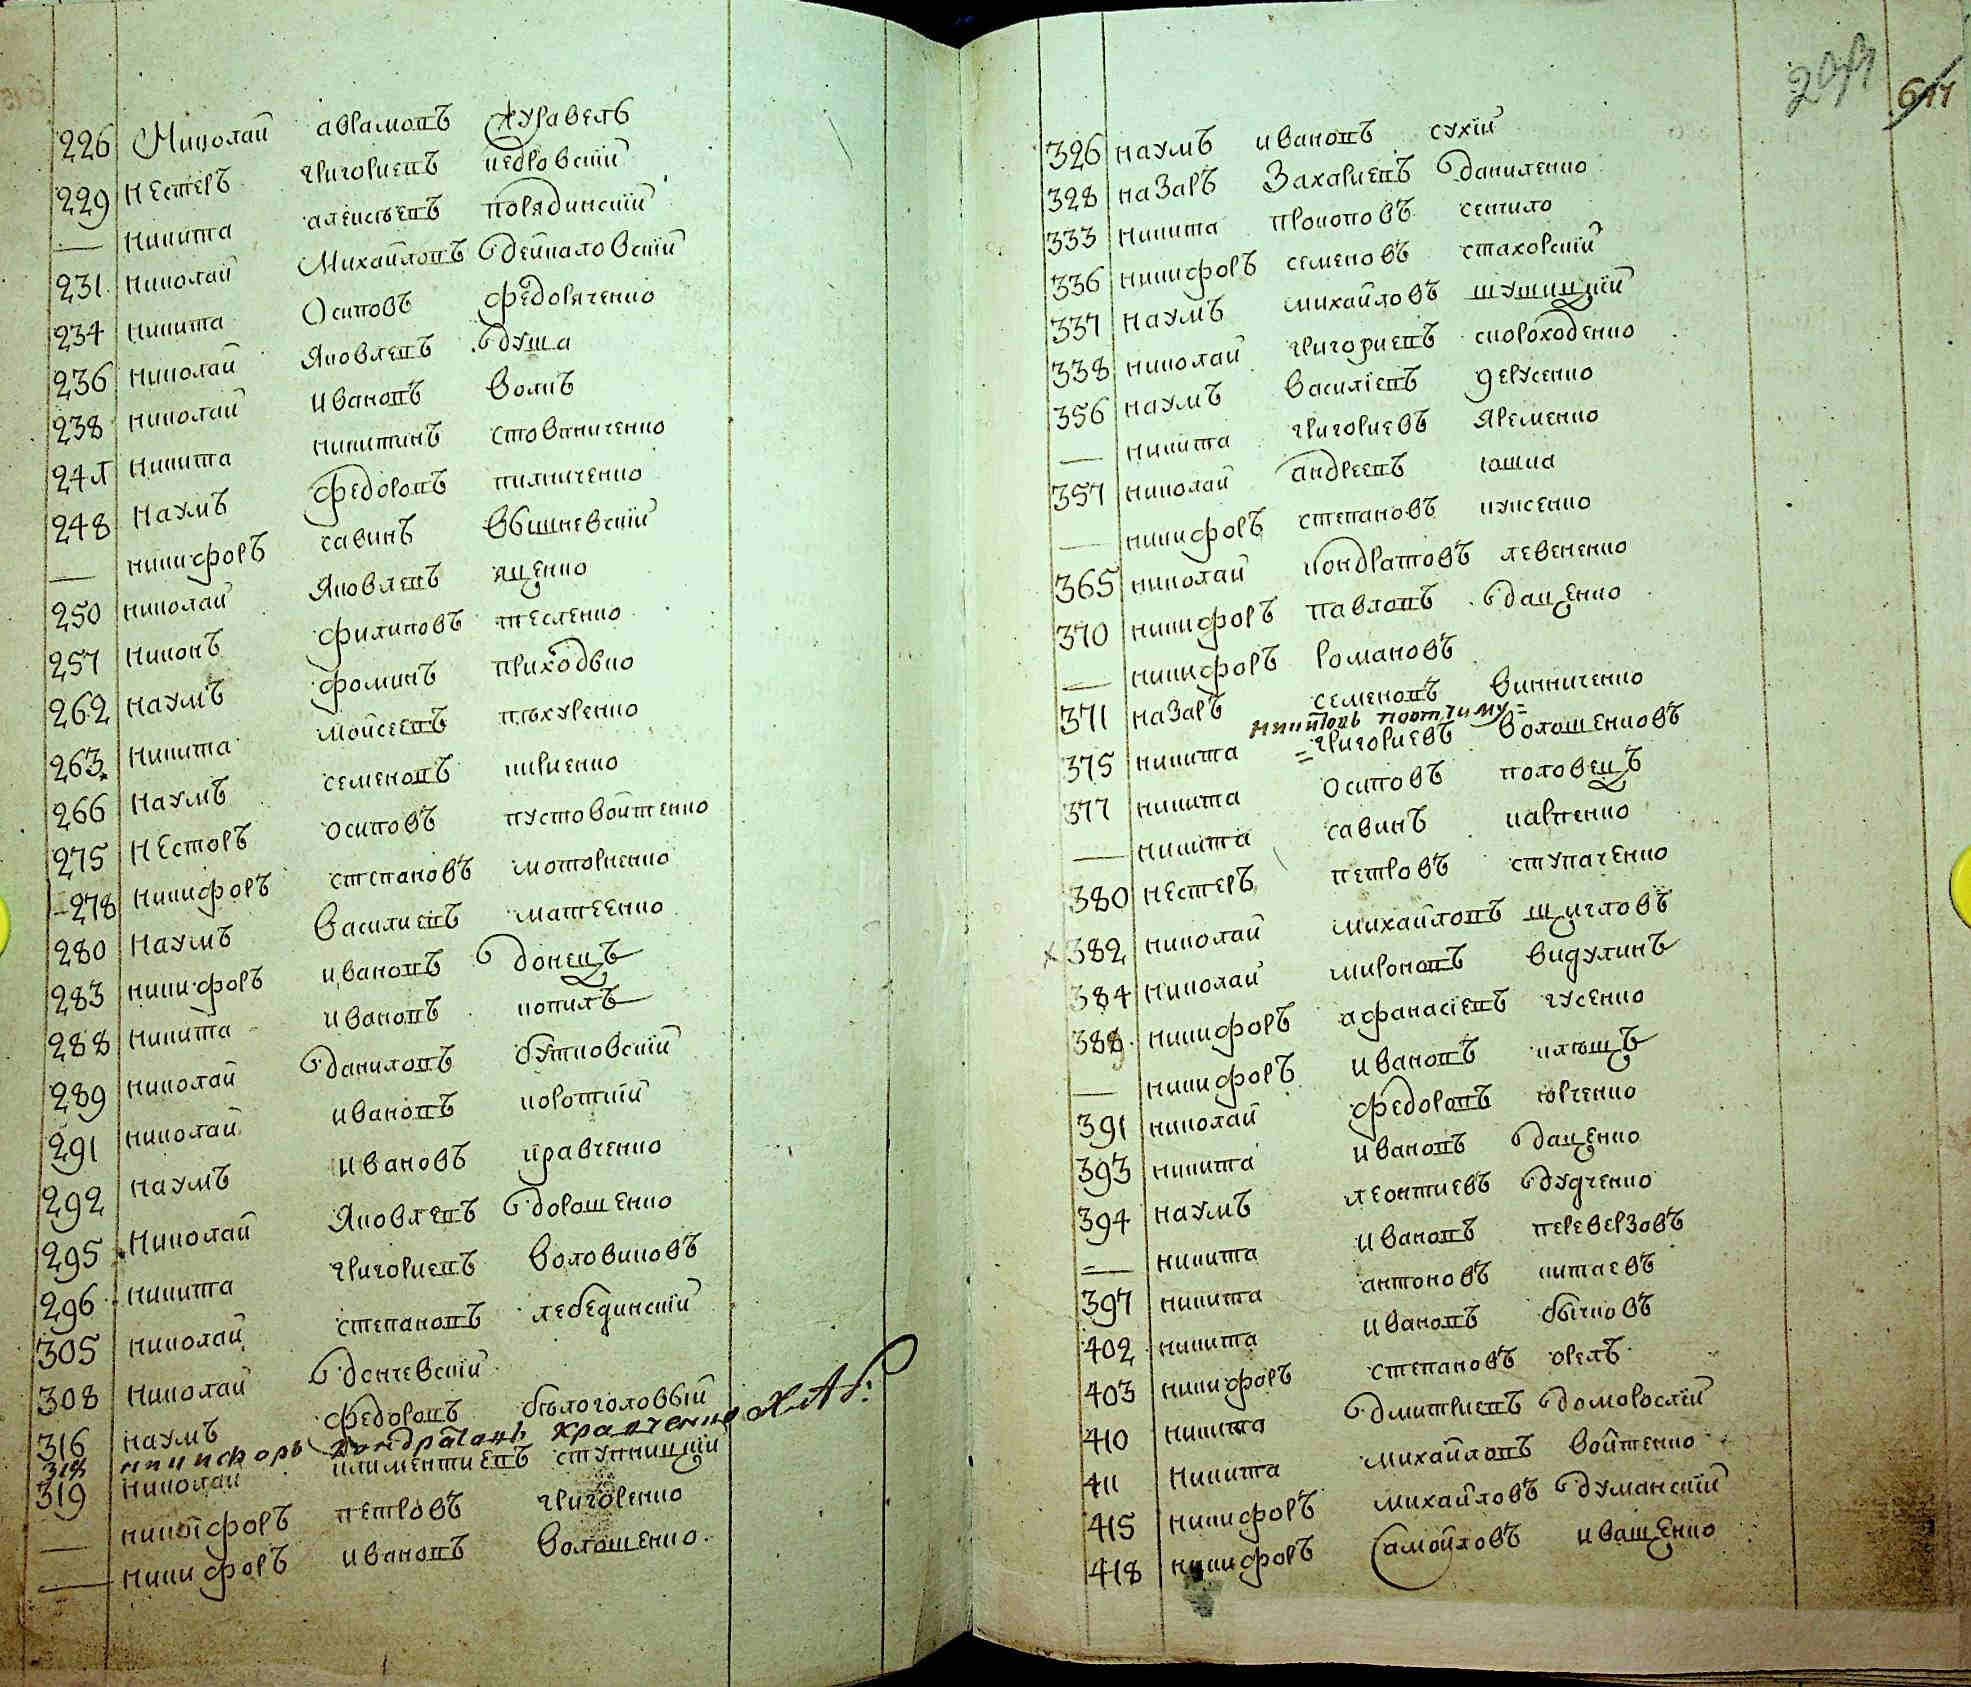 226 Николай Аврамовъ Журавель
229 Нестеръ Григориевъ Кедровский
— Никита Алексѣевъ Порядинский
231 Николай Михайловъ Дейкаловский
234 Никита Осиповъ Федоряченко
236 Николай Яковлевъ Душа
238 Николай Ивановъ Волкъ
241 Никита Никитинъ Стовпниченко
248 Наумъ Федоровъ Пилниченко
— Никифоръ Савинъ Вышневский
250 Николай Яковлевъ Яценко
257 Никонъ Филиповъ Тесленко
262 Наумъ Фоминъ Приходько
263 Никита Мойсеевъ Пѣхуренко
266 Наумъ Семеновъ Кириенко
275 Несторъ Осиповъ Пустовойтенко
278 Никифоръ Степановъ Моторненко
280 Наумъ Василиевъ Матеенко
283 Никифоръ Ивановъ Донецъ
288 Никита Ивановъ Копилъ
289 Николай Даниловъ Бутковский
291 Николай Ивановъ Короткий
292 Наумъ Ивановъ Кравченко
295 Николай Яковлевъ Дорошенко
296 Никита Григориевъ Воловиковъ
305 Николай Степановъ Лебединский
308 Николай Дончевский
316 Наумъ Федоровъ Бѣлоголовый
318 Никифоръ Кондратовъ Кравченко
319 Николай Климентиевъ Ступницкий
— Никифоръ Петровъ Григоренко
— Никифоръ Ивановъ Волошенко
611
326 Наумъ Ивановъ Сухий
328 Назаръ Захариевъ Даниленко
333 Никита Прокоповъ Сенкило
336 Никифоръ Семеновъ Стаховский
337 Наумъ Михайловъ Шушицкий
338 Николай Григориевъ Скороходенко
356 Наумъ Василіевъ Дерусенко
— Никита Григориевъ Яременко
357 Николай Андреевъ Юшка
— Никифоръ Степановъ Куксенко
365 Николай Кондратовъ Левененко
370 Никифоръ Павловъ Даценко
— Никифоръ Романовъ
371 Назаръ Семеновъ Винниченко
375 Никита Григориевъ Волошенковъ
377 Никита Осиповъ Половецъ
— Никита Савинъ Карпенко
380 Нестеръ Петровъ Ступаченко
382 Николай Михайловъ Щигловъ
384 Николай Мироновъ Видулинъ
388 Никифоръ Афанасіевъ Гусенко
— Никифоръ Ивановъ Клющъ
391 Николай Федоровъ Юрченко
393 Никита Ивановъ Даценко
394 Наумъ Леонтиевъ Дудченко
— Никита Ивановъ Переверзовъ
397 Никита Антоновъ Китаевъ
402 Никита Ивановъ Бычковъ
403 Никифоръ Степановъ Орелъ
410 Никита Дмитриевъ Доморослий
411 Никита Михайловъ Войтенко
415 Никифоръ Михайловъ Думанский
418 Никифоръ Самойловъ Иващенко